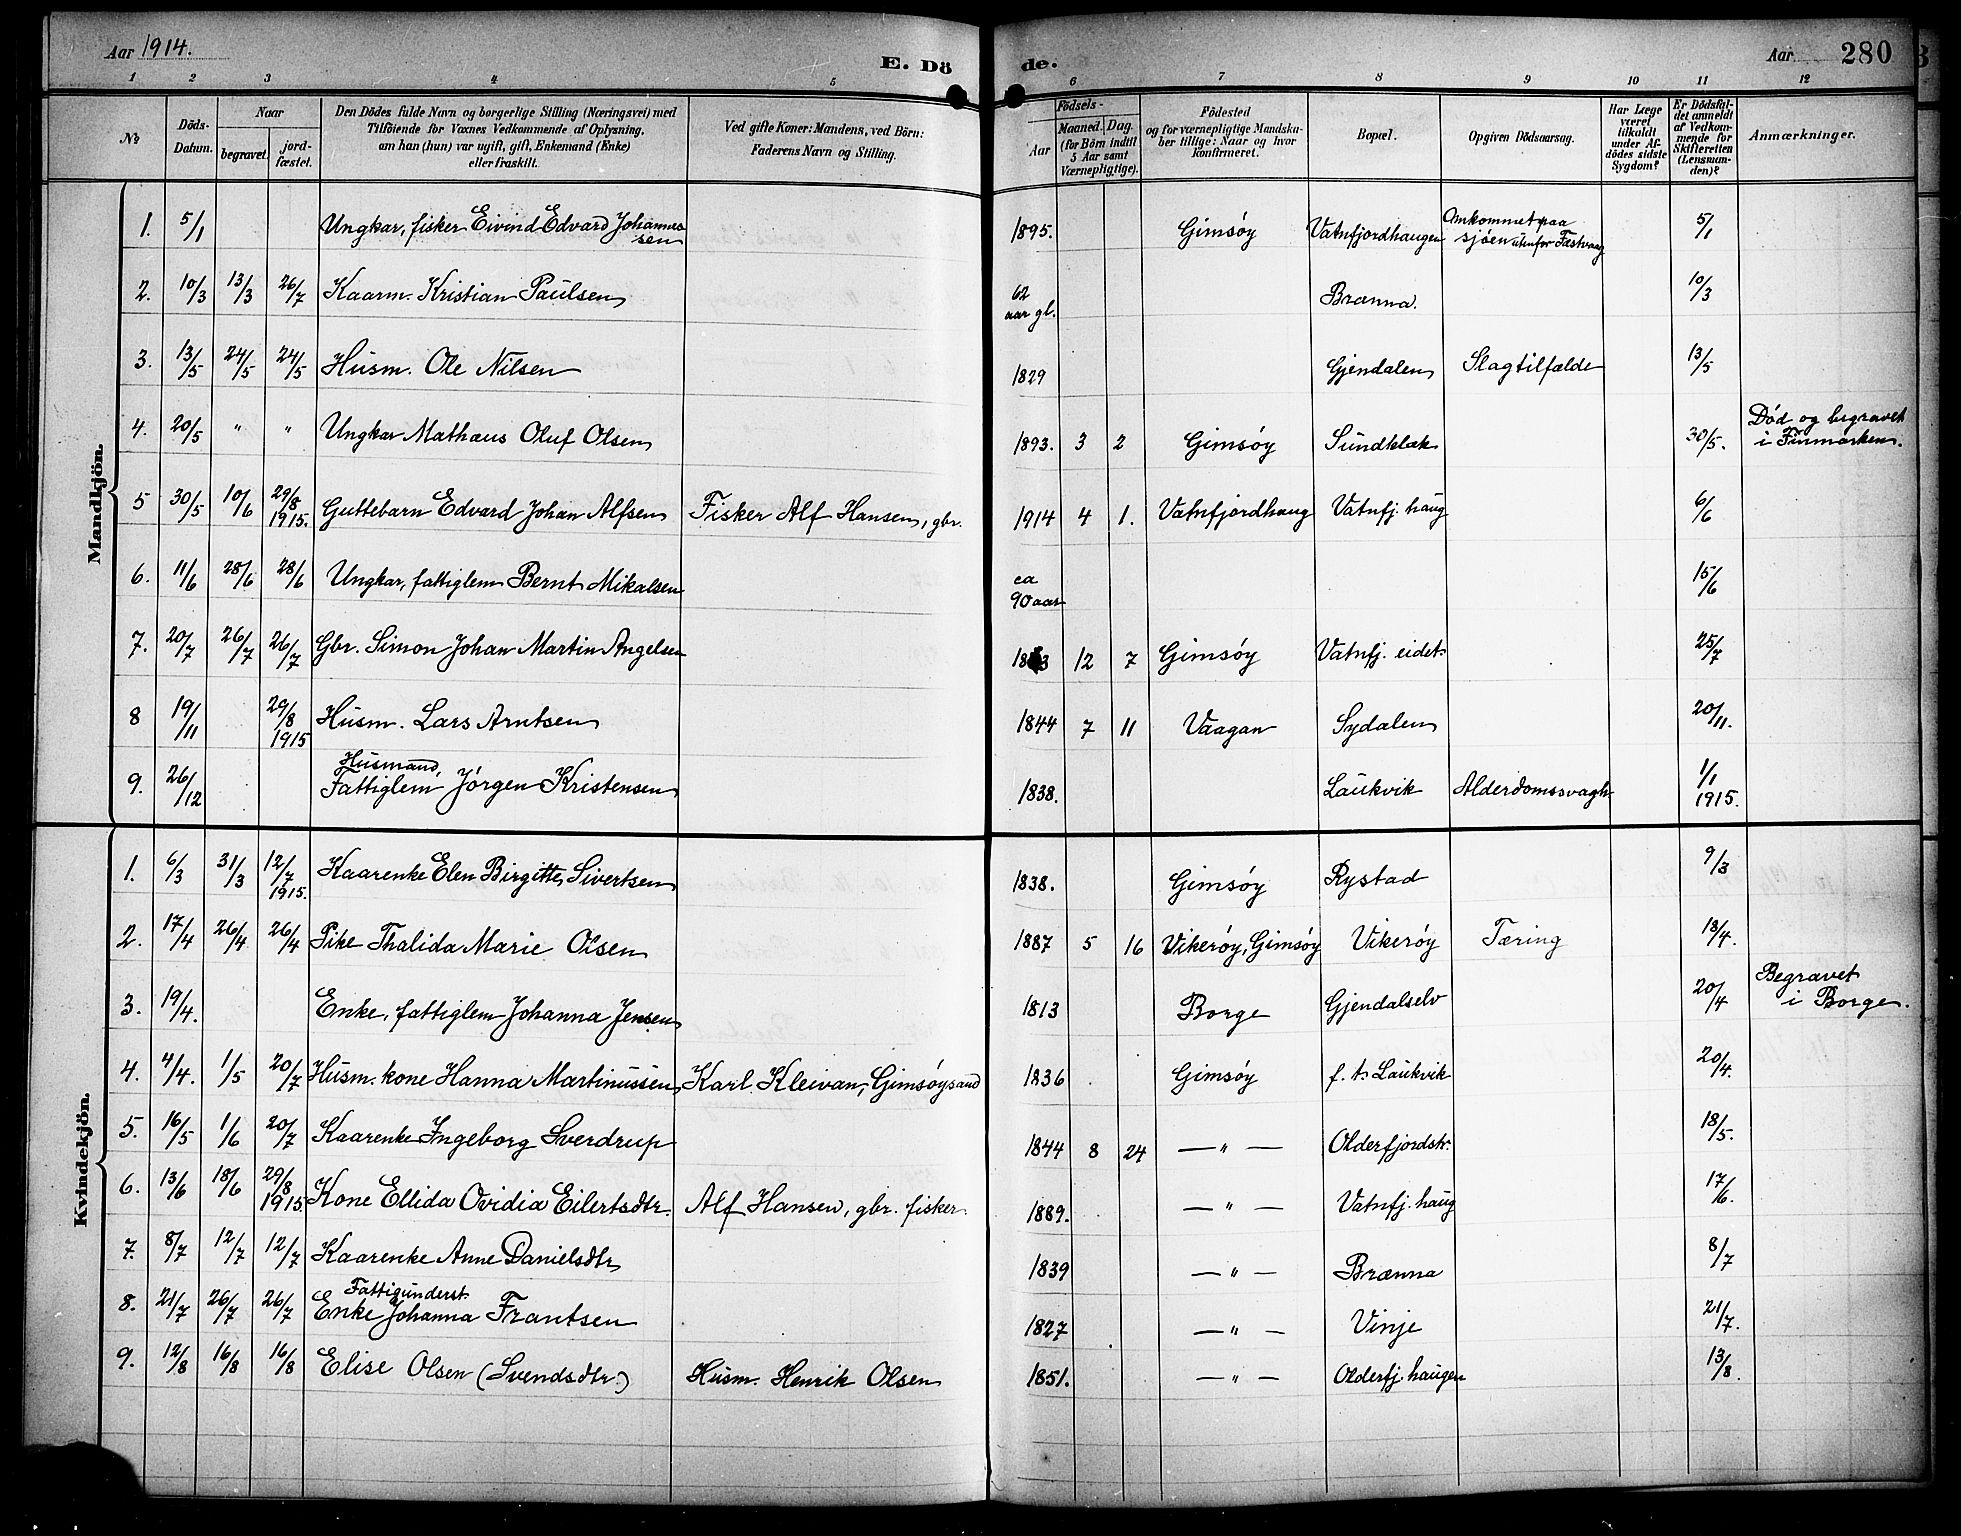 Aar 1914.
E. Dö
de.
Aar
280
1 2 3 4 5 6 7 8 9 10 11 12
No
Döds-
Datum.
Naar
begravet.
jord-
fæstet.
Den Dödes fulde Navn og borgerlige Stilling (Næringsvei) med
Tilföiende for Voxnes Vedkommende af Oplysning,
om han (hun) var ugift, gift, Enkemand (Enke)
eller fraskilt.
Ved gifte Koner: Mandens, ved Börn:
Faderens Navn og Stilling.
Födsels-
Aar
Maaned. Dag
(for Börn indtil
5 Aar samt
Værnepligtige).
Födested
og for værnepligtige Mandska-
ber tillige: Naar og hvor
konfirmeret.
Bopæl.
Opgiven Dödsaarsag.
Har Læge
været
tilkaldt
under Af-
dödes sidste
Sygdom?
Er Dödsfal-
det anmeldt
af Vedkom-
mende for
Skifteretten
(Lensman-
den)?
Anmærkninger.
Mandkjön.
1. 5/1 Ungkar, fisker Eivind Edvard Johannes
sen 1895. Gimsöy Vatnfjordhaugen Omkommet paa
sjöen utenfor Festvaag 5/1
2. 10/3 13/3 26/7 Kaarm. Kristian Paulsen 62
aar gl. Brænna. 10/3
3. 13/5 24/5 24/5 Husm. Ole Nilsen 1829 Gjendalen Slagtilfælde 13/5
4. 20/5 " " Ungkar Mathæus Oluf Olsen 1893. 3 2 Gimsöy Sundklak 30/5. Död og begravet
i Finmarken.
5 30/5 10/6 29/8
1915. Guttebarn Edvard Johan Alfsen Fisker Alf Hansen, gbr. 1914 4 1. Vatnfjordhaug Vatnfj. haug 6/6
6. 11/6 28/6 28/6 Ungkar, fattiglem Bernt Mikalsen ca
90 aar 15/6
7. 20/7 26/7 26/7 Gbr. Simon Johan Martin Angelsen 12 7 Gimsöy Vatnfj. eidet 25/7
8 19/11 29/8
1915 Husm. Lars Arntsen 1844 7 11 Vaagan Sydalen 20/11.
Husmand,
9. 26/12 Fattiglem Jörgen Kristensen 1838. Laukvik Alderdomssvagh 1/1
1915.
Kvindekjön.
1. 6/3 31/3 12/7
1915. Kaarenke Elen Birgitte Sivertsen 1838. Gimsöy Rystad 9/3
2. 17/4 26/4 26/4 Pike Thalida Marie Olsen 1887 5 16 Vikeröy, Gimsöy Vikeröy Tæring 18/4.
3. 19/4. Enke, fattiglem Johanna Jensen 1813 Borge Gjendalselv 20/4 Begravet
i Borge.
4. 4/4. 1/5 20/7 Husm. kone Hanna Martinussen Karl Kleivan, Gimsöysand 1836 Gimsöy f. t. Laukvik 20/4.
5. 16/5 1/6 20/7 Kaarenke Ingeborg Sverdrup 1844 8 24 — " — Olderfjordstr. 18/5.
6. 13/6 18/6 29/8
1915 Kone Ellida Ovidia Eilertsdtr. Alf Hansen, gbr. fisker. 1889. — " — Vatnfj. haug 17/6.
7. 8/7 12/7 12/7 Kaarenke Anne Danielsdtr 1839 — " — Brænna 8/7
Fattigunderst.
8. 21/7 26/7 26/7 Enke Johanna Frantsen 1827 — " — Vinje 21/7.
9. 12/8 16/8 16/8 Elise Olsen (Svendsdtr.) Husm. Henrik Olsen 1851. — " — Olderfj. haugen 13/8.